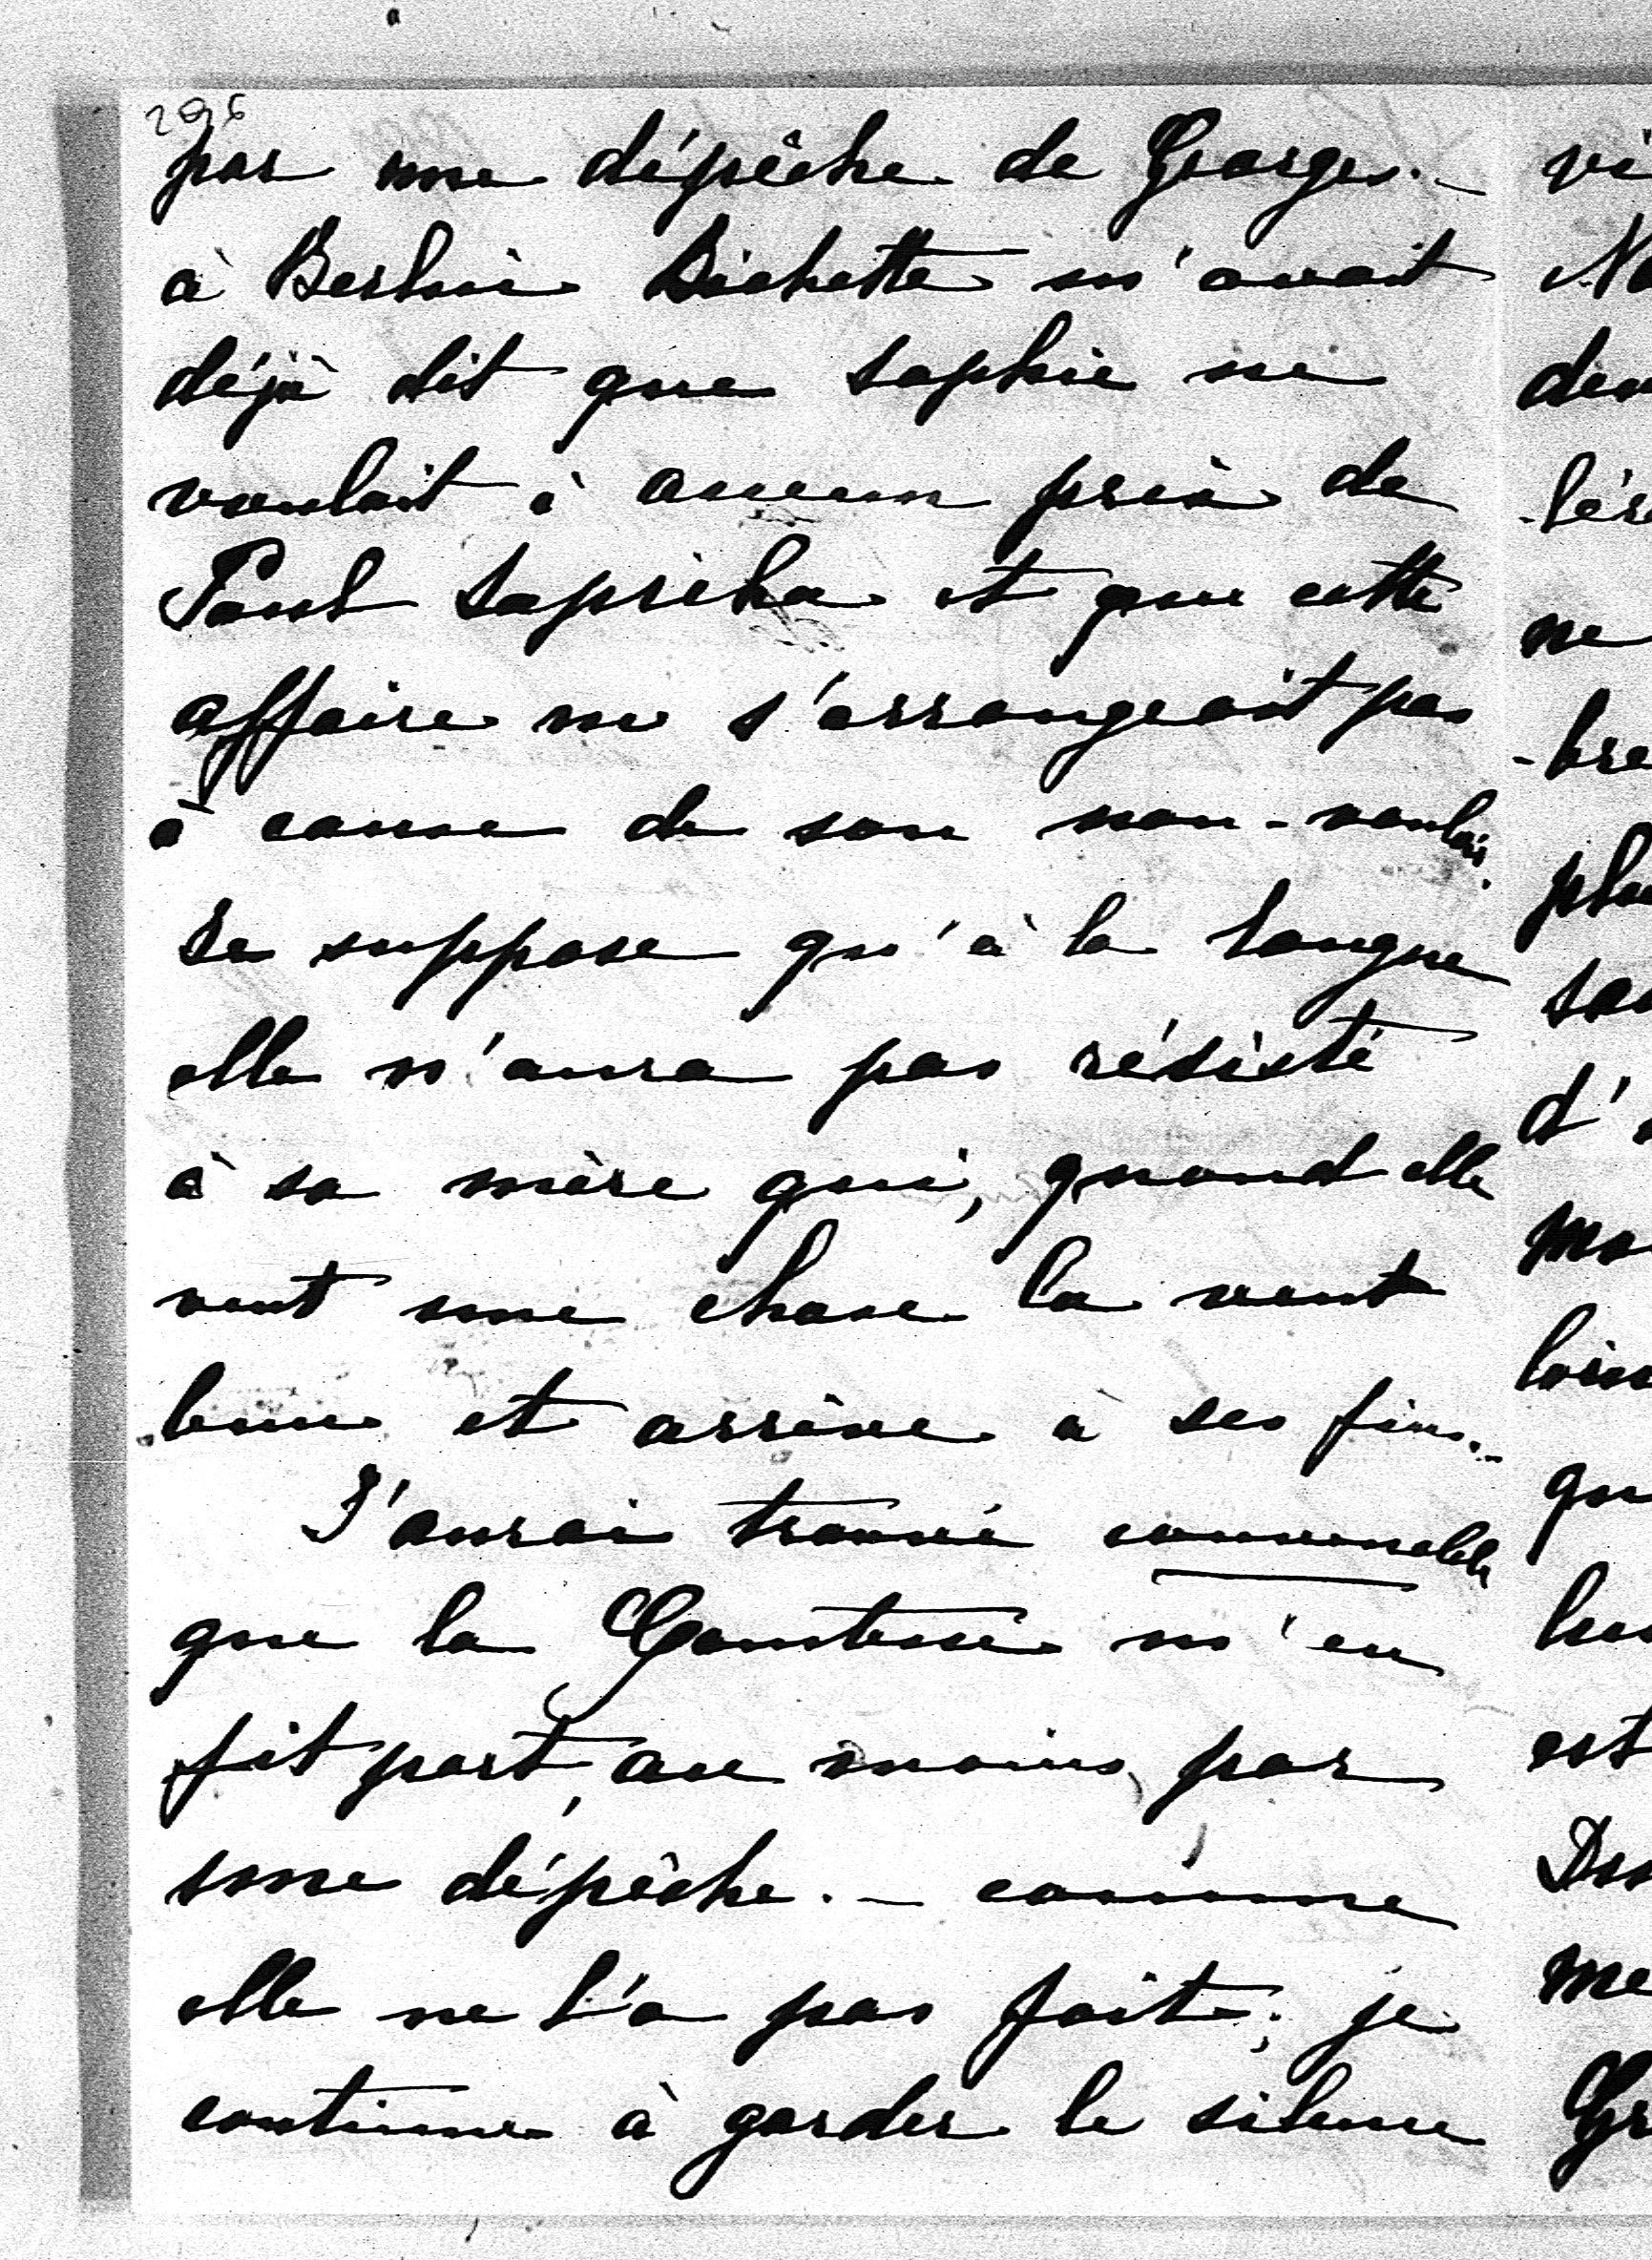 296
par une dépêche de Georges. –
à Berlin Bichette m'avait
déjà dit que Sophie ne
voulait à aucun prix de
Paul Sapieha et que cette
affaire ne s'arrangeait pas
à cause de son non-vouloir.
Je suppose qu'à la longue
elle n'aura pas résisté
à sa mère qui, quand elle
veut une chose la veut
bien et arrive à ses fins. –
J'aurai trouvé convenable
que la Comtesse m'en
fit part, au moins, par
une dépêche. – comme
elle ne l'a pas fait; je
continue à garder le silence